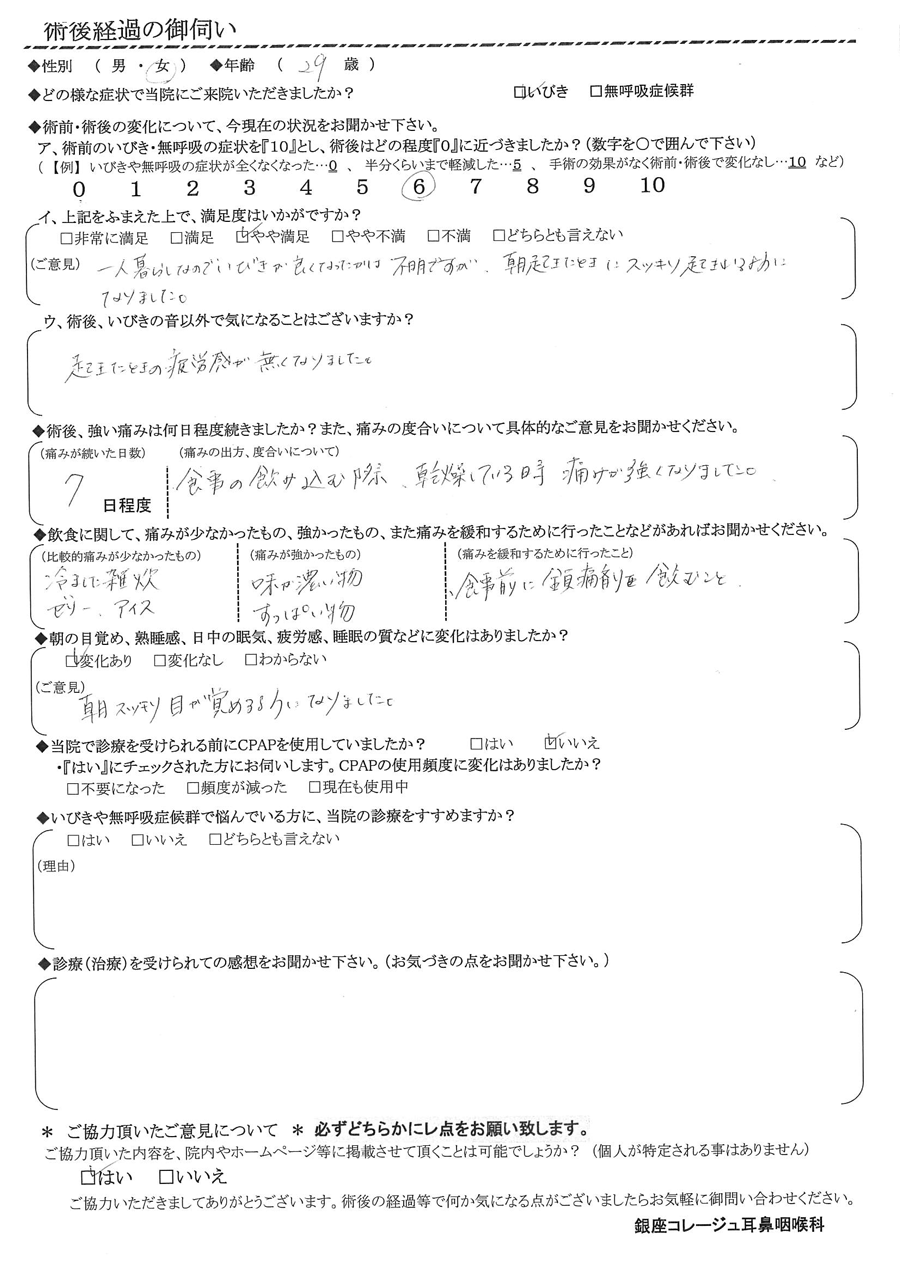 術後経過の御伺い
◆性別 （ 男 ・ 女 ） ◆年齢 （ 29 歳 ）
◆どの様な症状で当院にご来院いただきましたか？ ☑いびき □無呼吸症候群
◆術前・術後の変化について、今現在の状況をお聞かせ下さい。
ア、術前のいびき・無呼吸の症状を『10』とし、術後はどの程度『0』に近づきましたか？（数字を〇で囲んで下さい）
（【例】 いびきや無呼吸の症状が全くなくなった…0 、 半分くらいまで軽減した…5 、 手術の効果がなく術前・術後で変化なし…10 など）
0 1 2 3 4 5 6 7 8 9 10
イ、上記をふまえた上で、満足度はいかがですか？
□非常に満足 □満足 ☑やや満足 □やや不満 □不満 □どちらとも言えない
（ご意見） 一人暮らしなのでいびきが良くなったかは 不明ですが、朝起きたときにスッキリ起きれるように
なりました。
ウ、術後、いびきの音以外で気になることはございますか？
起きたときの疲労感が無くなりました。
◆術後、強い痛みは何日程度続きましたか？また、痛みの度合いについて具体的なご意見をお聞かせください。
（痛みが続いた日数） （痛みの出方、度合いについて）
7 日程度 食事の飲み込む際、乾燥している時 痛みが強くなりました。
◆飲食に関して、痛みが少なかったもの、強かったもの、また痛みを緩和するために行ったことなどがあればお聞かせください。
（比較的痛みが少なかったもの） （痛みが強かったもの） （痛みを緩和するために行ったこと）
冷ました雑炊 味が濃い物 食事前に鎮痛剤を飲むこと、
ゼリー、アイス すっぱい物
◆朝の目覚め、熟睡感、日中の眠気、疲労感、睡眠の質などに変化はありましたか？
☑変化あり □変化なし □わからない
（ご意見）
朝スッキリ目が覚めるようになりました。
◆当院で診療を受けられる前にCPAPを使用していましたか？ □はい ☑いいえ
・『はい』にチェックされた方にお伺いします。CPAPの使用頻度に変化はありましたか？
□不要になった □頻度が減った □現在も使用中
◆いびきや無呼吸症候群で悩んでいる方に、当院の診療をすすめますか？
□はい □いいえ □どちらとも言えない
（理由）
◆診療（治療）を受けられての感想をお聞かせ下さい。（お気づきの点をお聞かせ下さい。）
＊ ご協力頂いたご意見について ＊ 必ずどちらかにレ点をお願い致します。
ご協力頂いた内容を、院内やホームページ等に掲載させて頂くことは可能でしょうか？ （個人が特定される事はありません）
☑はい □いいえ
ご協力いただきましてありがとうございます。術後の経過等で何か気になる点がございましたらお気軽に御問い合わせください。
銀座コレージュ耳鼻咽喉科